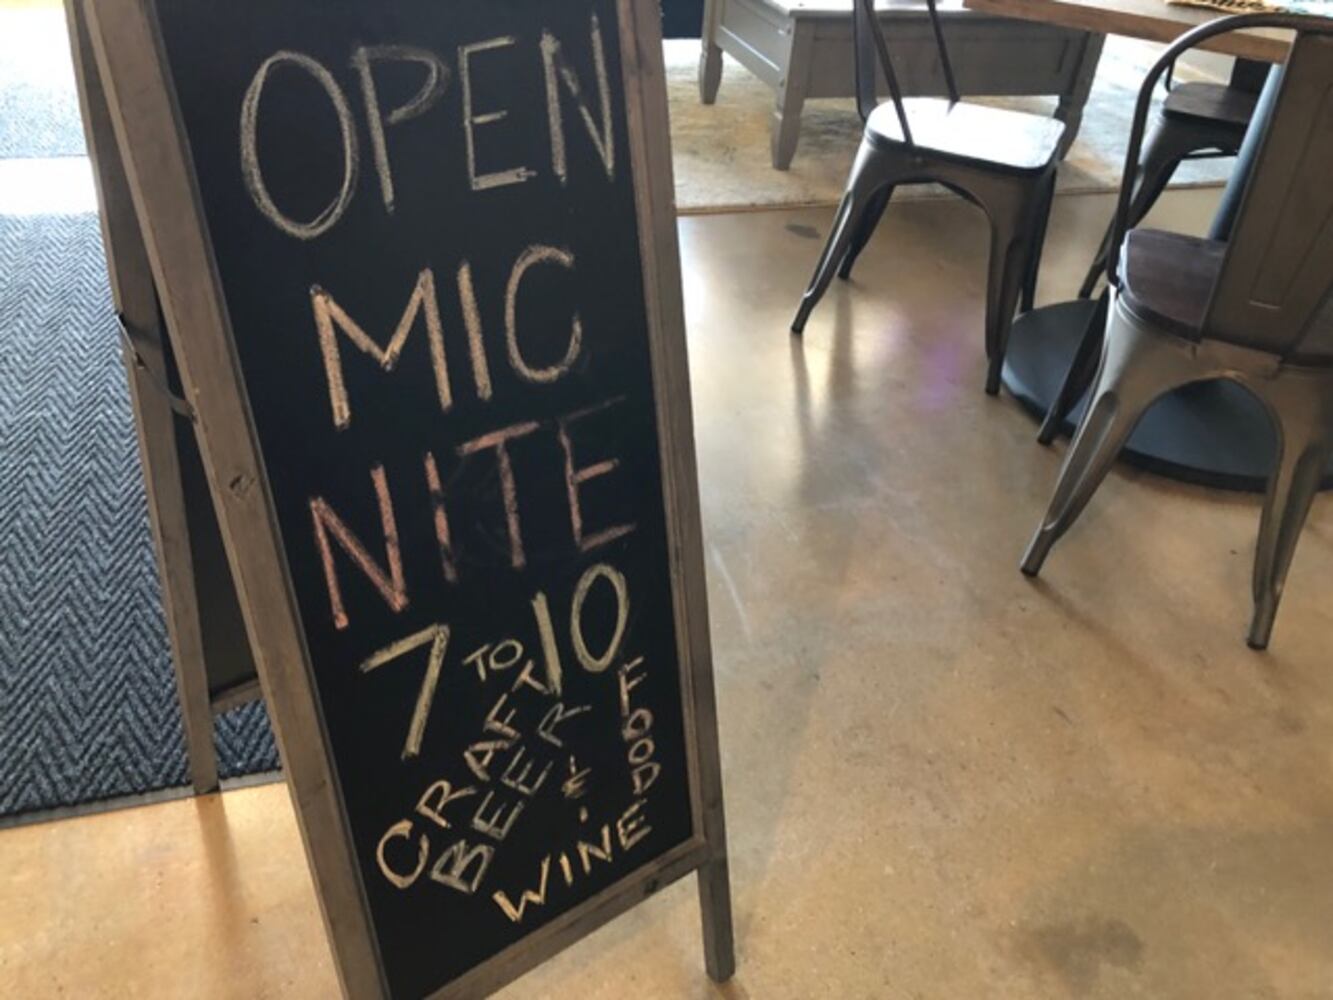 OPEN
MIC
NITE
7 TO 10
CRAFT
BEER &
WINE
FOOD